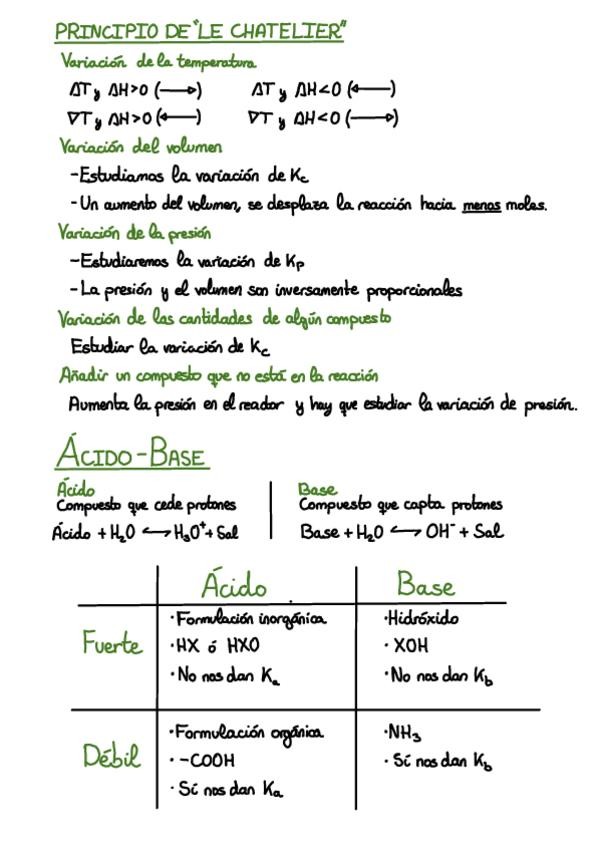 PRINCIPIO DE "LE CHATELIER"
Variación de la temperatura
ΔT y ΔH>0 (⟶)    ΔT y ΔH<0 (⟵)
∇T y ΔH>0 (⟵)    ∇T y ΔH<0 (⟶)
Variación del volumen
-Estudiamos la variación de Kc
-Un aumento del volumen, se desplaza la reacción hacia menos moles.
Variación de la presión
-Estudiaremos la variación de Kp
-La presión y el volumen son inversamente proporcionales
Variación de las cantidades de algún compuesto
Estudiar la variación de Kc
Añadir un compuesto que no está en la reacción
Aumenta la presión en el reador y hay que estudiar la variación de presión..
ÁCIDO-BASE
Ácido
Compuesto que cede protones
Ácido + H₂O ⟷ H₃O⁺ + Sal
Base
Compuesto que capta protones
Base + H₂O ⟷ OH⁻ + Sal
Ácido    Base
Fuerte
·Formulación inorgánica
·HX ó HXO
·No nos dan Ka
·Hidróxido
·XOH
·No nos dan Kb
Débil
·Formulación orgánica
·-COOH
·Sí nos dan Ka
·NH₃
·Sí nos dan Kb